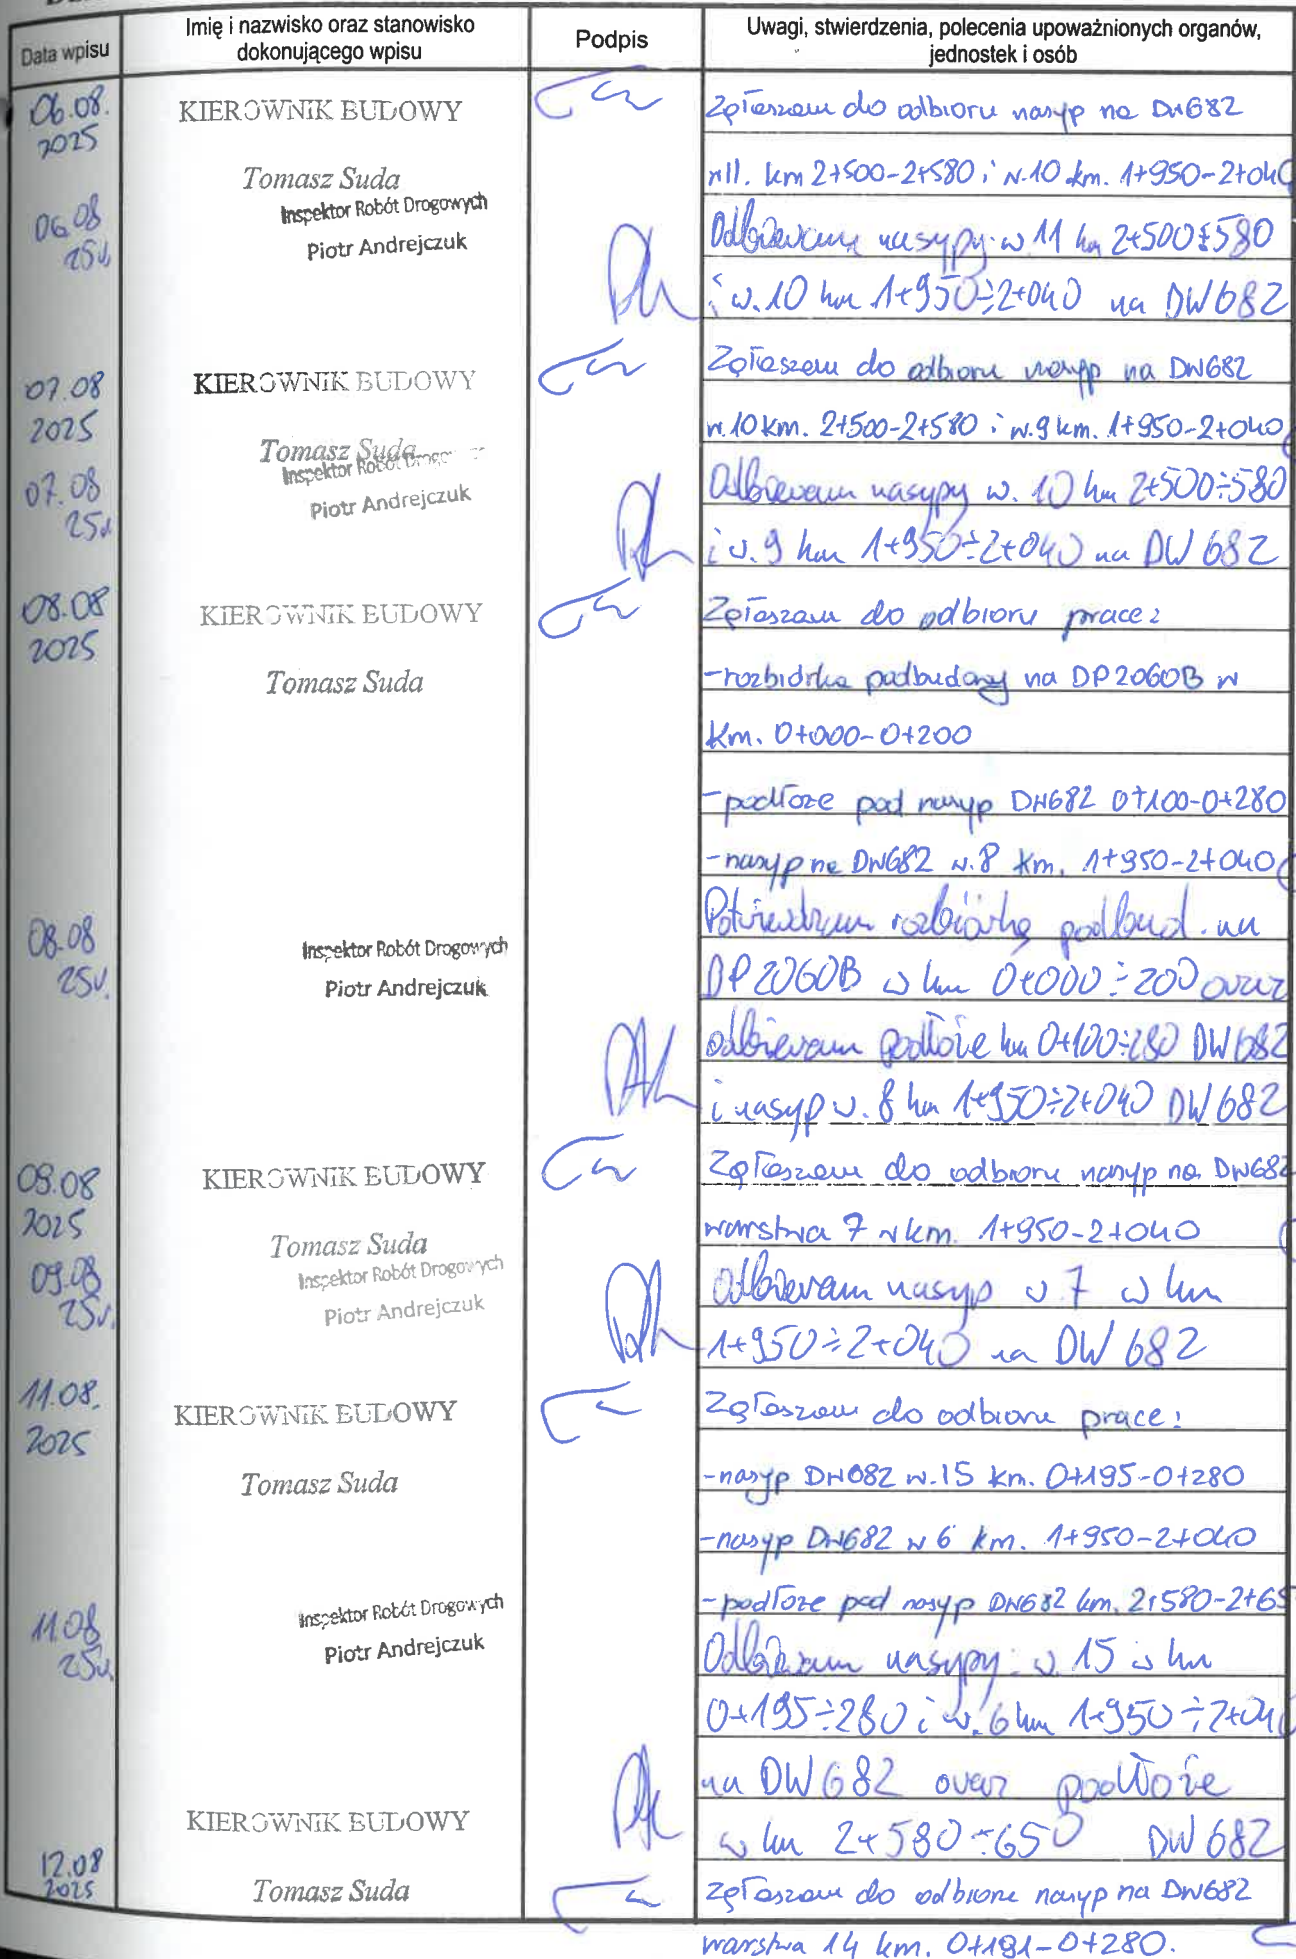 Data wpisu
Imię i nazwisko oraz stanowisko
dokonującego wpisu
Podpis
Uwagi, stwierdzenia, polecenia upoważnionych organów,
jednostek i osób
06.08.
2025
KIEROWNIK BUDOWY
Tomasz Suda
Zgłaszam do odbioru nasyp na DW682
w11. km 2+500-2+580 i w.10 km. 1+950-2+040
06.08
25r.
Inspektor Robót Drogowych
Piotr Andrejczuk
Odbieram nasypy: w 11 km 2+500÷580
i w.10 km 1+950÷2+040 na DW682
07.08
2025
KIEROWNIK BUDOWY
Tomasz Suda
Zgłaszam do odbioru nasyp na DW682
w.10 km. 2+500-2+580 i w.9 km. 1+950-2+040
07.08
25r.
Inspektor Robót
Piotr Andrejczuk
Odbieram nasypy w. 10 km 2+500÷580
i w. 9 km 1+950÷2+040 na DW 682
08.08
2025
KIEROWNIK BUDOWY
Tomasz Suda
Zgłaszam do odbioru prace:
-rozbiórka podbudowy na DP2060B w
km. 0+000-0+200
-podłoże pod nasyp DW682 0+100-0+280
-nasyp na DW682 w.8 km. 1+950-2+040
08.08
25r.
Inspektor Robót Drogowych
Piotr Andrejczuk
Potwierdzam rozbiórkę podbud. na
DP2060B w km 0+000÷200 oraz
odbieram podłoże km 0+100÷280 DW682
i nasyp w. 8 km 1+950÷2+040 DW682
09.08
2025
KIEROWNIK BUDOWY
Tomasz Suda
Zgłaszam do odbioru nasyp na DW682
warstwa 7 w km. 1+950-2+040
09.08
25r.
Inspektor Robót Drogowych
Piotr Andrejczuk
Odbieram nasyp w 7 w km
1+950÷2+040 na DW 682
11.08.
2025
KIEROWNIK BUDOWY
Tomasz Suda
Zgłaszam do odbioru prace:
-nasyp DW682 w.15 km. 0+195-0+280
-nasyp DW682 w 6 km. 1+950-2+040
-podłoże pod nasyp DW682 km. 2+580-2+65
11.08
25r.
Inspektor Robót Drogowych
Piotr Andrejczuk
Odbieram nasypy: w. 15 w km
0+195÷280 i w. 6 km 1+950÷2+040
na DW682 oraz podłoże
w km 2+580÷650 DW682
12.08
2025
KIEROWNIK BUDOWY
Tomasz Suda
Zgłaszam do odbioru nasyp na DW682
warstwa 14 km. 0+191-0+280.